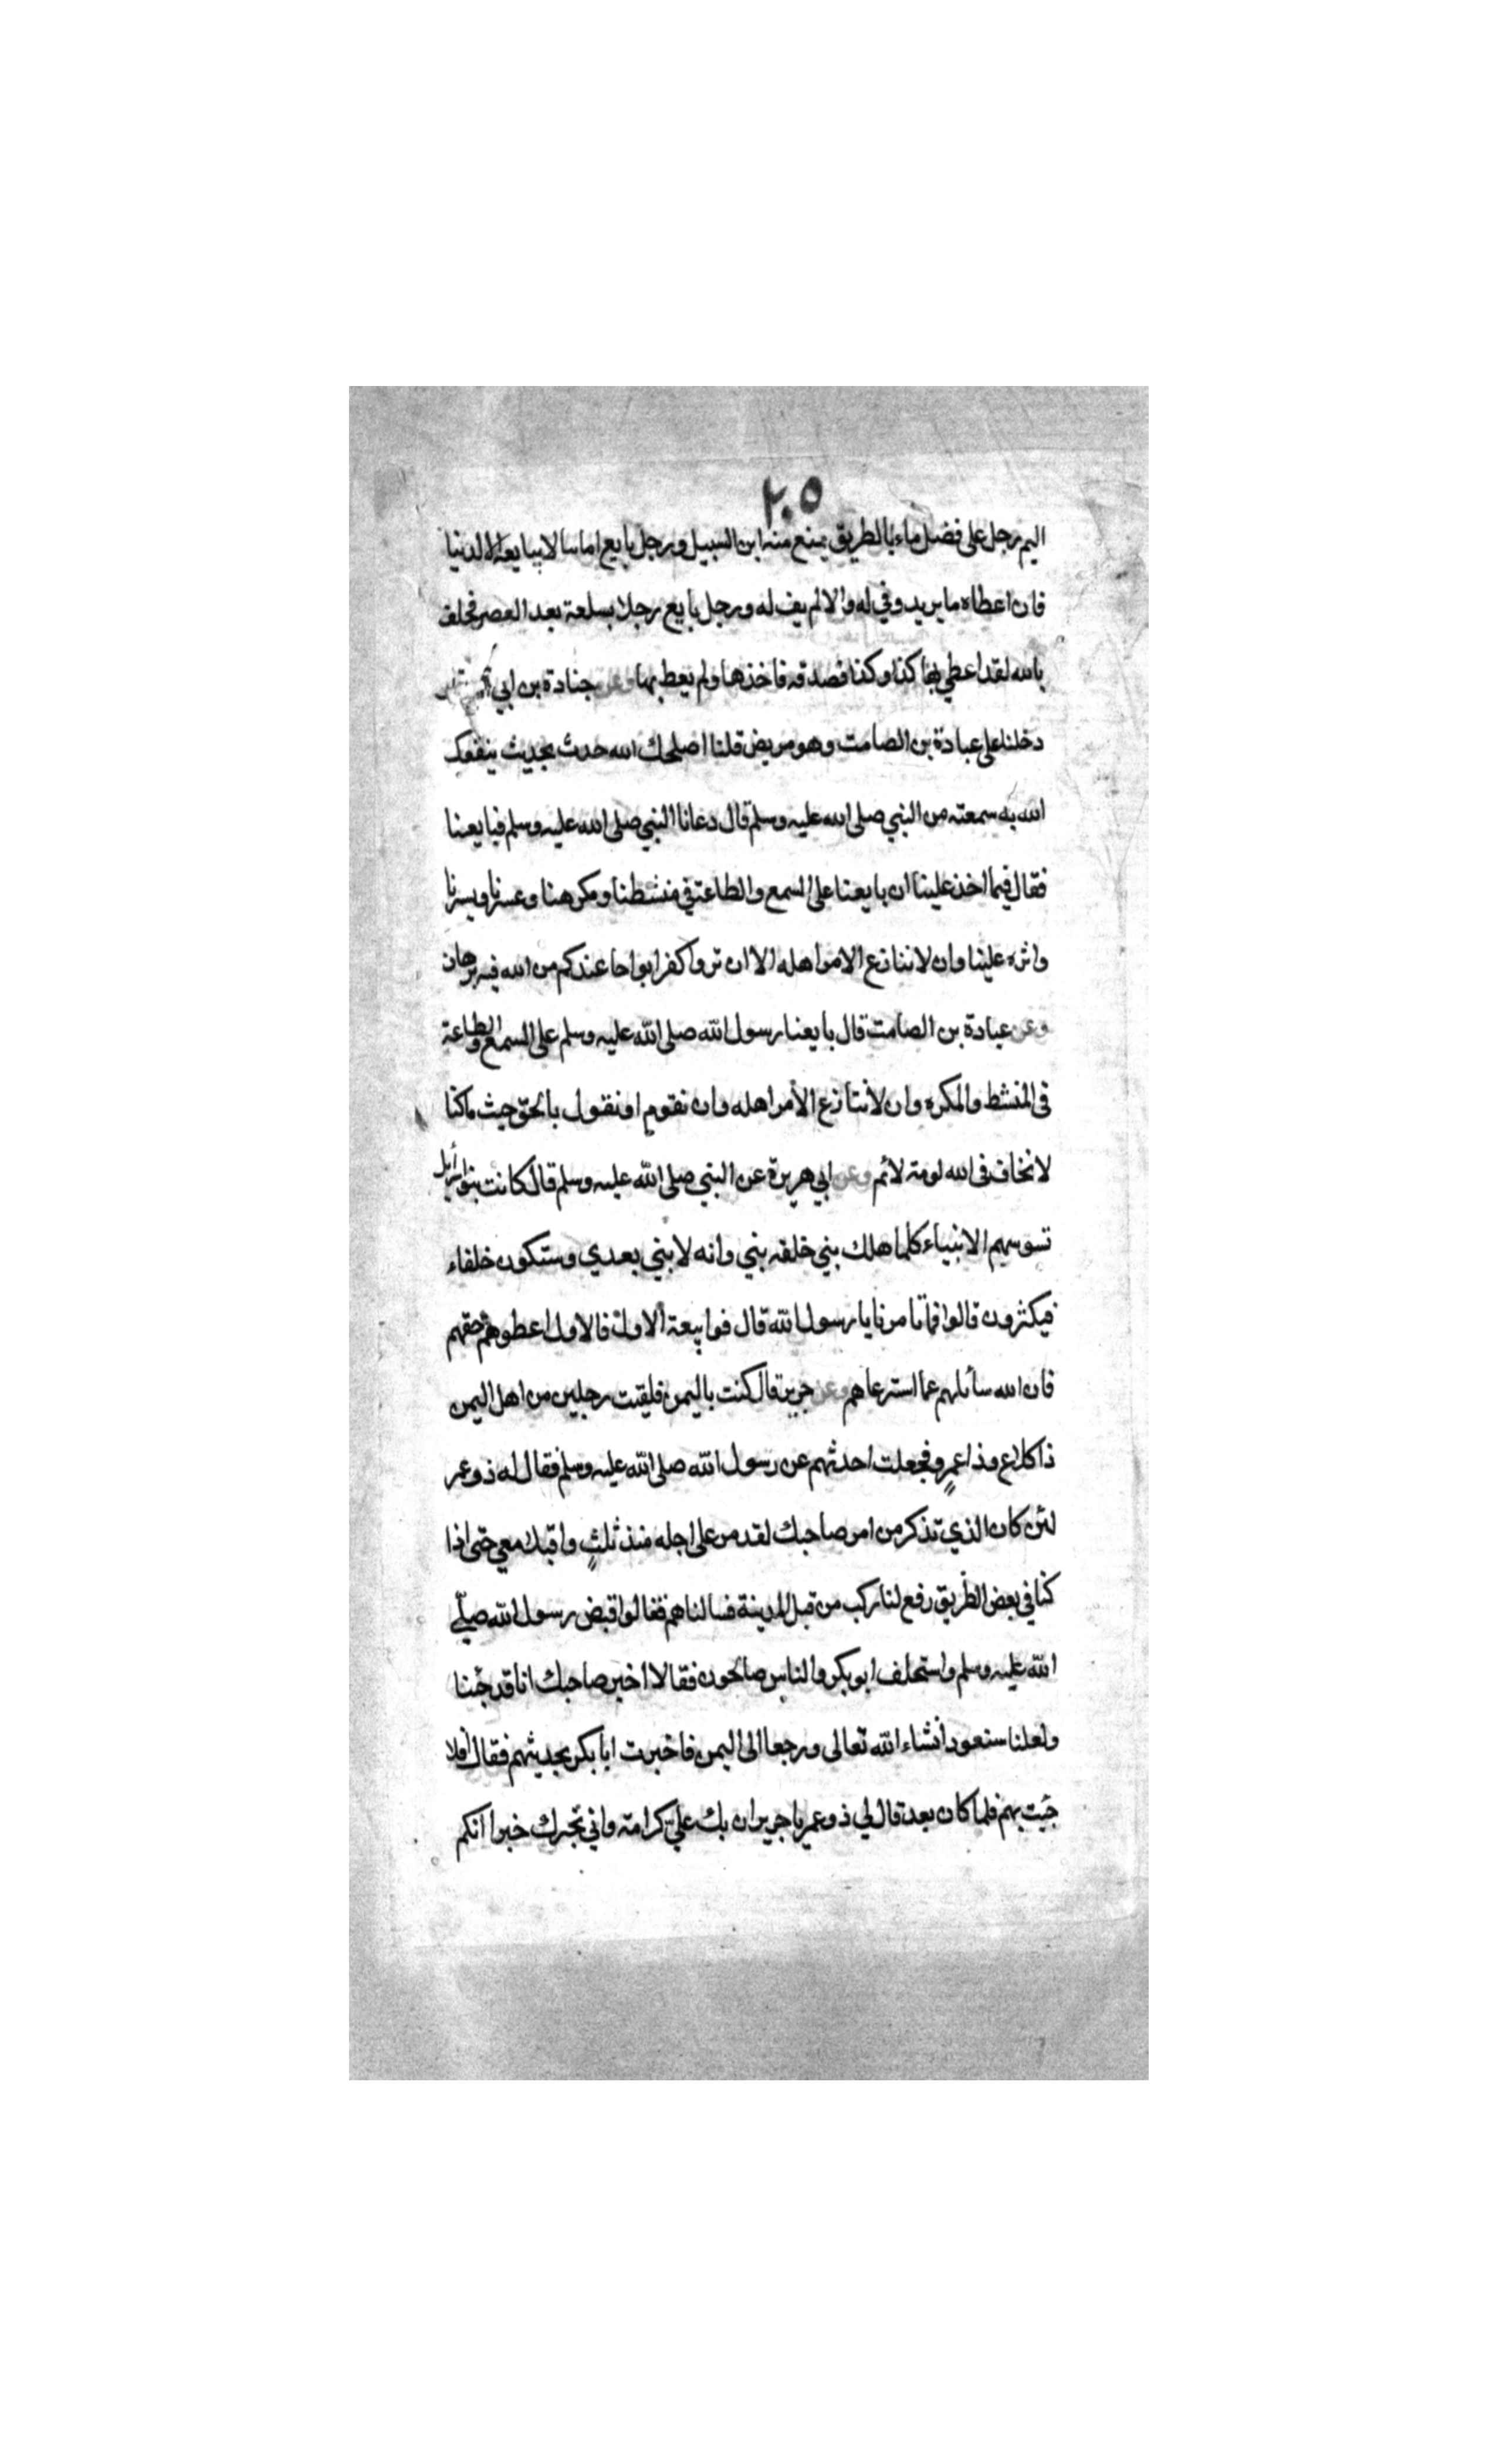 ٢٠٥
اليم رجل على فضل ماء بالطريق يمنع منه ابن السبيل ورجل بايع اماما لا يبايعه الا لدنيا
فان اعطاه ما يريد وفي له والا لم يف له ورجل بايع رجلا بسلعة بعد العصر فحلف
بالله لقد اعطي بها كذا وكذا فصدقه فاخذها ولم يعط بها وعن جنادة بن ابي
دخلنا على عبادة بن الصامت وهو مريض قلنا اصلحك الله حدث بحديث ينفعك
الله به سمعته من النبي صلى الله عليه وسلم قال دعانا النبي صلى الله عليه وسلم فبايعنا
فقال فيما اخذ علينا ان بايعنا على السمع والطاعة في منشطنا ومكرهنا وعسرنا ويسرنا
واثره علينا وان لا ننازع الامر اهله الا ان تروا كفرا بواحا عندكم من الله فيه برهان
وعن عبادة بن الصامت قال بايعنا رسول الله صلى الله عليه وسلم على السمع والطاعة
في المنشط والمكره وان لا ننازع الأمر اهله وان نقوم او نقول بالحق حيث ما كنا
لا نخاف في الله لومة لائم وعن ابي هريرة عن النبي صلى الله عليه وسلم قال كانت بنو اسرائيل
تسوسهم الانبياء كلما هلك نبي خلفه نبي وانه لا نبي بعدي وستكون خلفاء
فيكثرون قالوا فما تامرنا يا رسول الله قال فوا ببيعة الاول فالاول اعطوهم حقهم
فان الله سائلهم عما استرعاهم وعن جرير قال كنت باليمن فلقيت رجلين من اهل اليمن
ذا كلاع وذا عمرو فجعلت احدثهم عن رسول الله صلى الله عليه وسلم فقال له ذو عمر
لئن كان الذي تذكر من امر صاحبك لقد مر على اجله منذ ثلث واقبلا معي حتى اذا
كنا في بعض الطريق رفع لنا ركب من قبل المدينة فسالناهم فقالوا قبض رسول الله صلى
الله عليه وسلم واستخلف ابو بكر والناس صالحون فقالا اخبر صاحبك انا قد جئنا
ولعلنا سنعود انشاء الله تعالى ورجعا الى اليمن فاخبرت ابا بكر بحديثهم فقال افلا
جئت بهم فلما كان بعد قال لي ذو عمر يا جرير ان بك علي كرامة واني مخبرك خبرا انكم